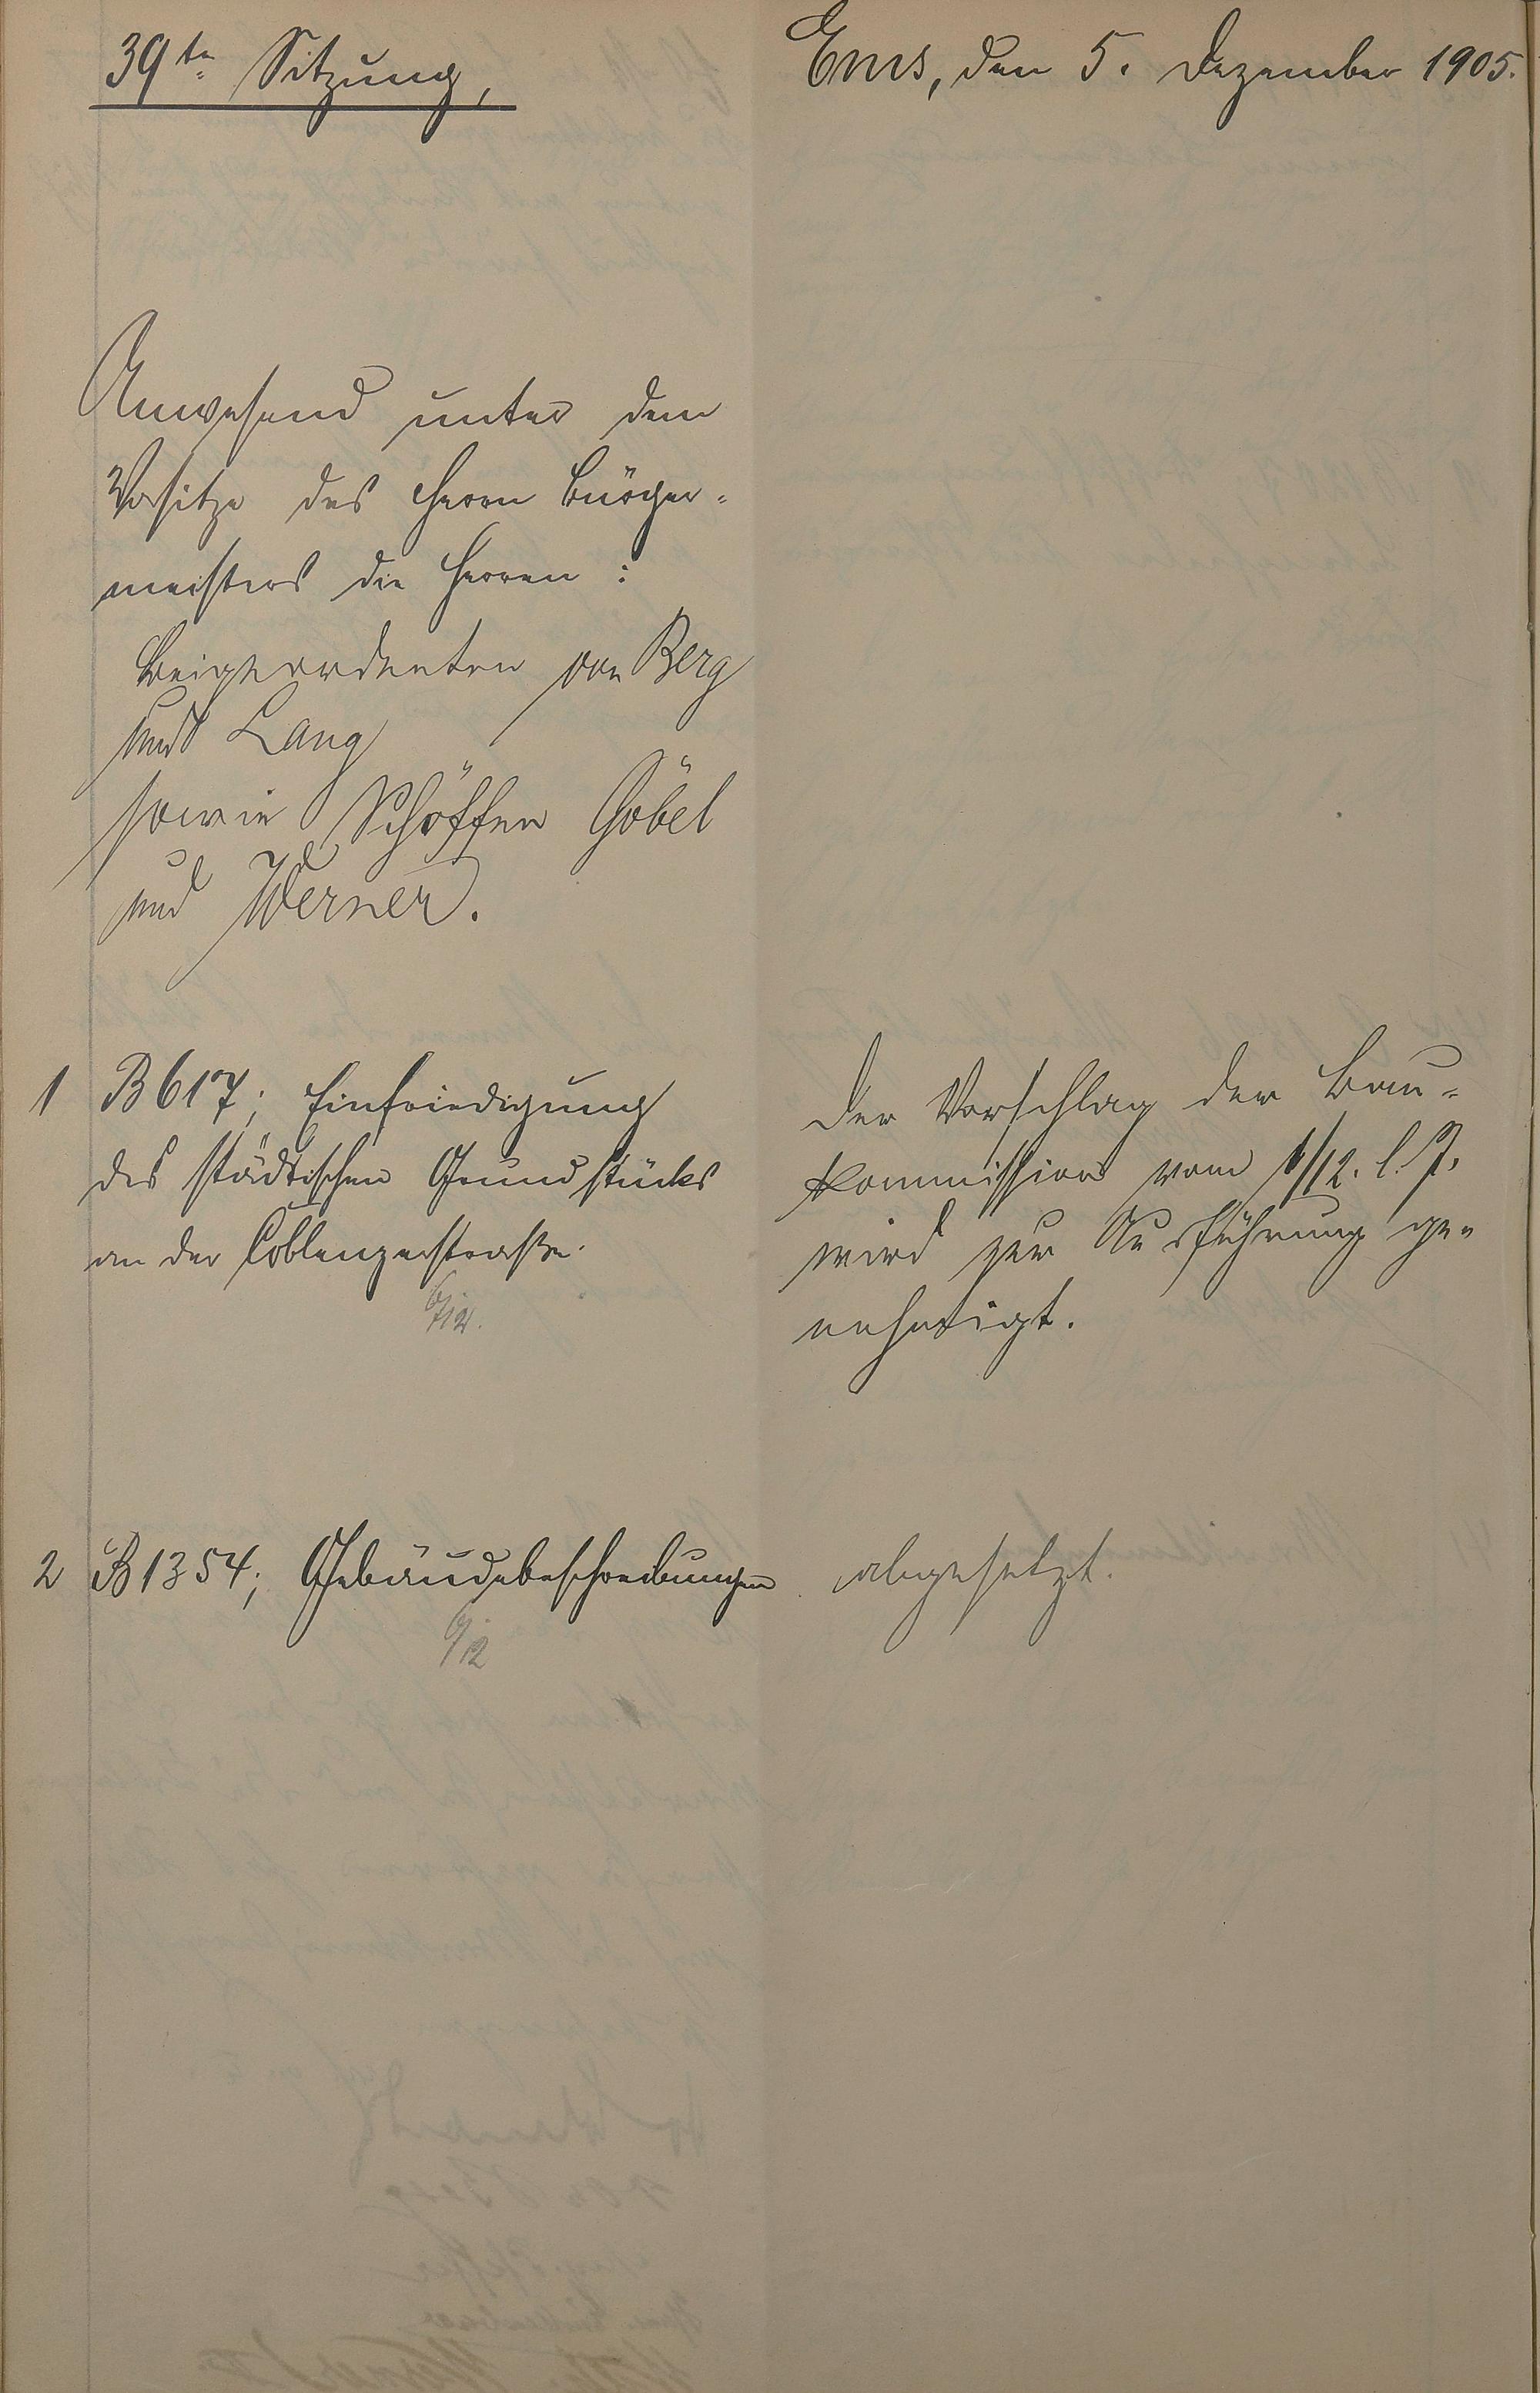 39te Sitzung,
Ems, den 5. Dezember 1905.
Anwesend unter dem
Vorsitze des Herrn Bürger-
meisters die Herren:
Beigeordneten von Berg
und Lang
sowie Schöffen Göbel
und Werner.
1 B 617; Einfriedigung
des städtischen Grundstücks
an der Coblenzerstraße.
6/12.
Der Vorschlag der Bau-
kommission vom 1/12. l. J.
wird zur Ausführung ge-
nehmigt.
2 B 1354; Gebäudebeschreibungen
6/12
abgesetzt.